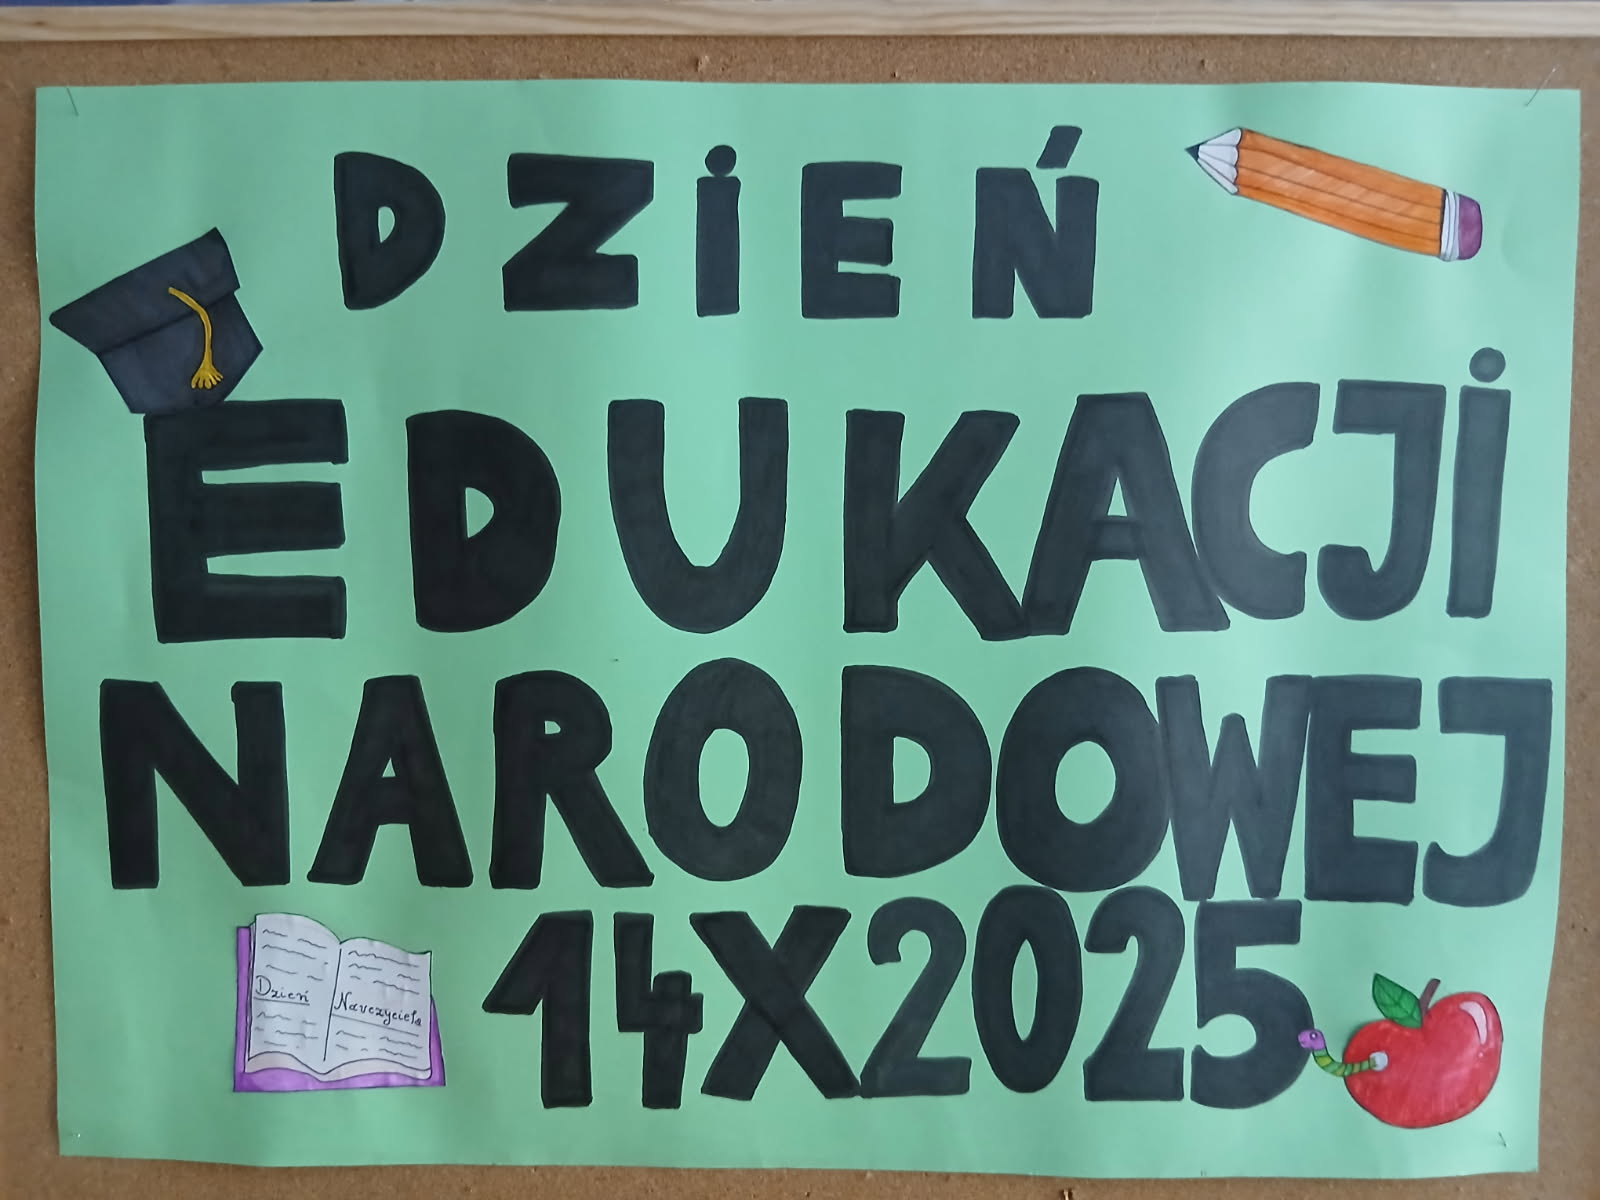 DZiEŃ
EDUKACJi
NARODOWEJ
14X2025
Dzień Nauczyciela